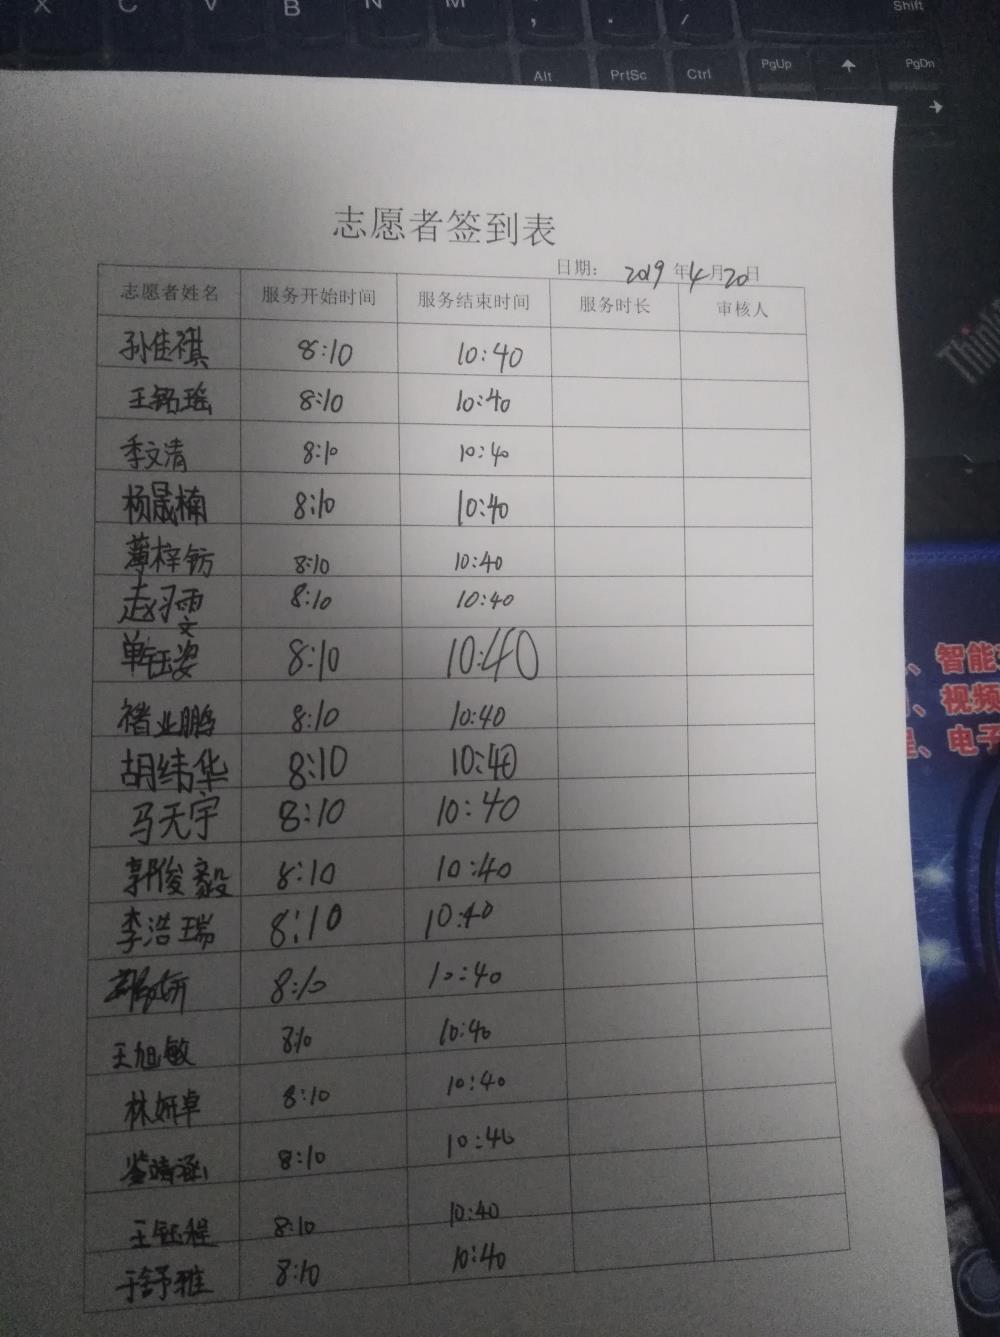 X C V B N M , . /
Shift
Alt PrtSc Ctrl PgUp PgDn
志愿者签到表
日期： 2019 年 4 月 20 日
志愿者姓名 服务开始时间 服务结束时间 服务时长 审核人
孙佳祺 8:10 10:40
王铭瑶 8:10 10:40
季文清 8:10 10:40
杨晟楠 8:10 10:40
薄梓钫 8:10 10:40
赵习雯 8:10 10:40
单钰姿 8:10 10:40
褚业鹏 8:10 10:40
胡纬华 8:10 10:40
马天宇 8:10 10:40
郭俊毅 8:10 10:40
李浩瑞 8:10 10:40
8:10 10:40
王旭敏 8:10 10:40
林妍卓 8:10 10:40
靖涵 8:10 10:40
王钰程 8:10 10:40
于舒雅 8:10 10:40
Think
、智能
、视频
、电子